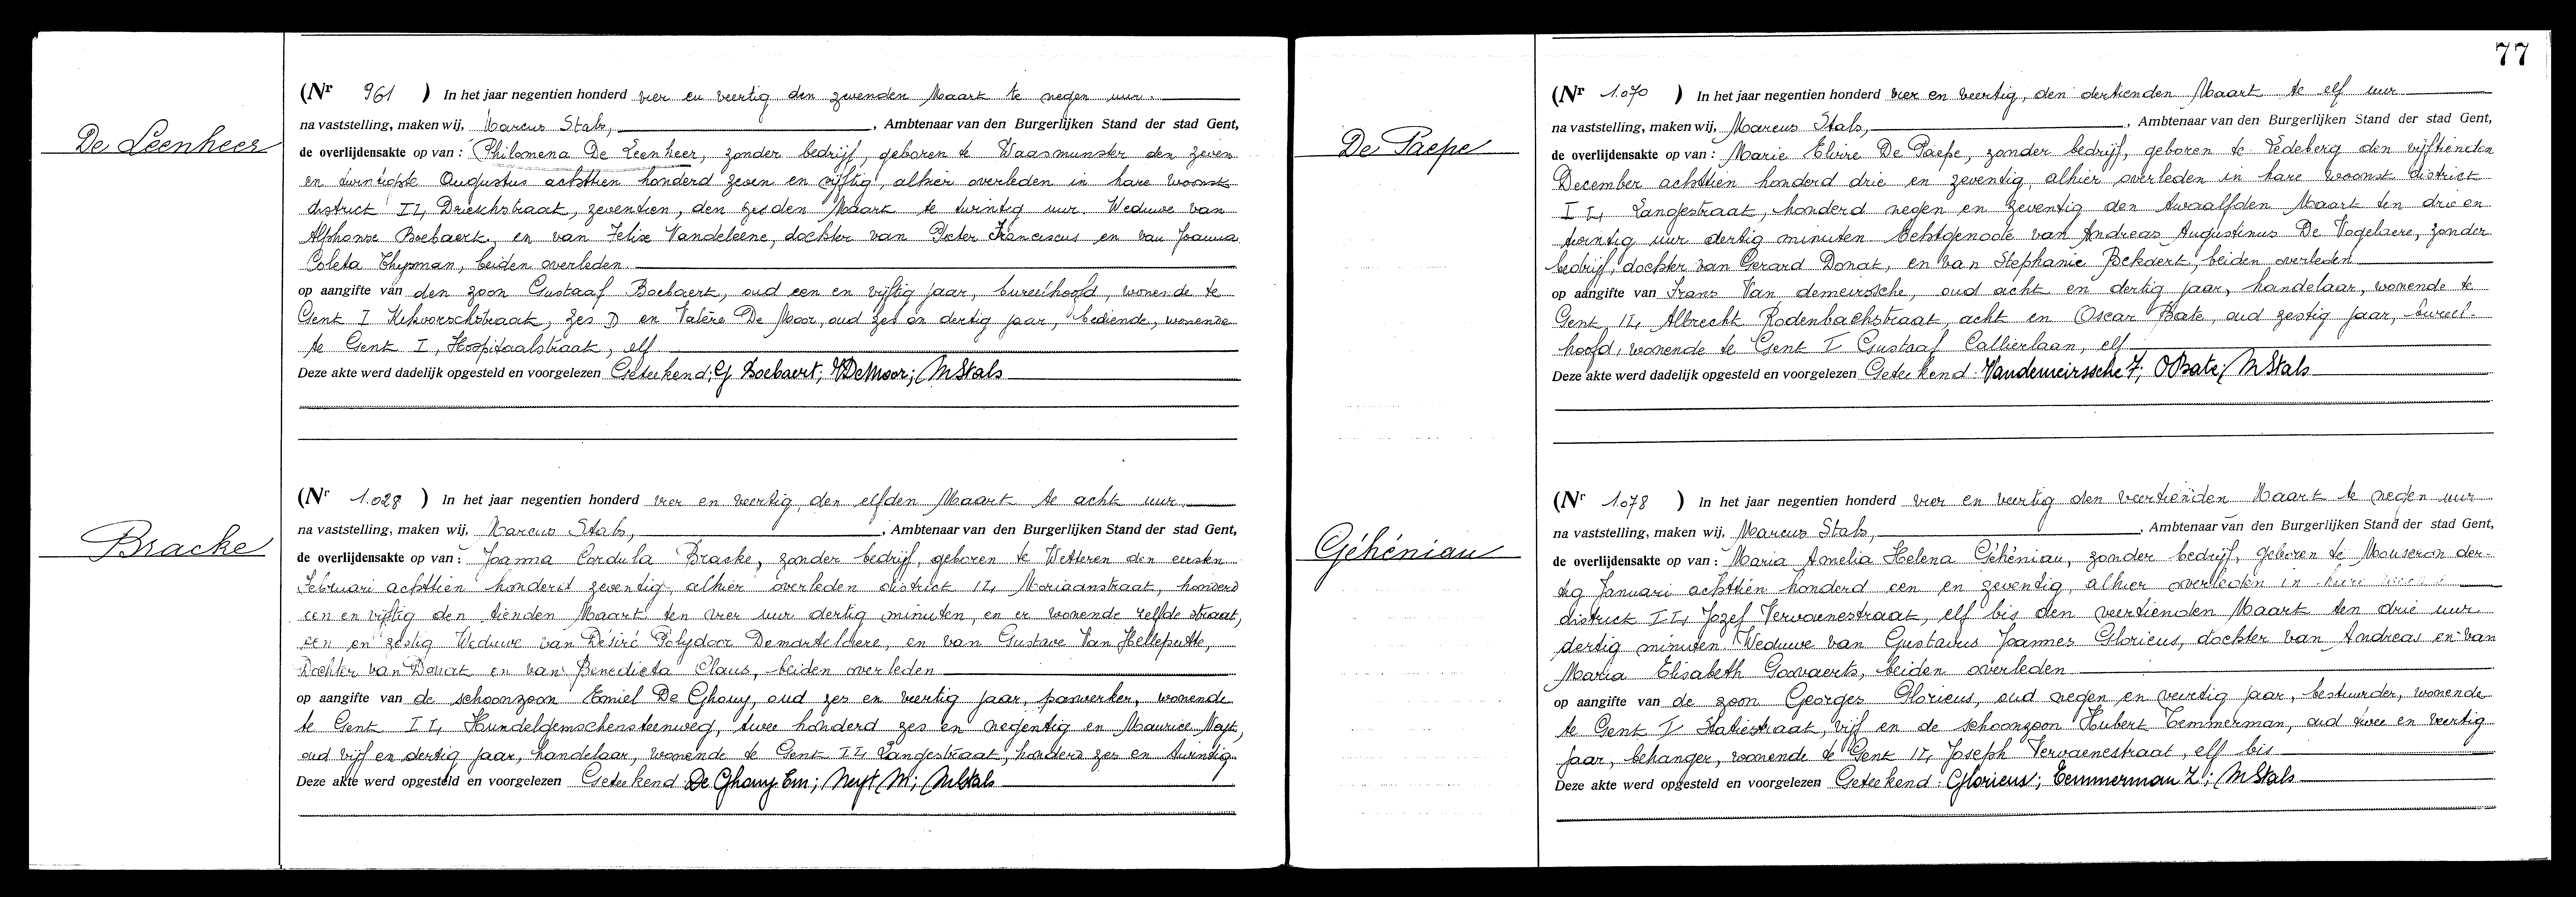 De Leenheer
(Nr 961 ) In het jaar negentien honderd vier en veertig den zevenden Maart te negen uur.
na vaststelling, maken wij, Marcus Stals, , Ambtenaar van den Burgerlijken Stand der stad Gent,
de overlijdensakte op van : Philomena De Leenheer, zonder bedrijf, geboren te Waasmunster den zeven
en twintigste Augustus achttien honderd zeven en vijftig, alhier overleden in hare woonst
district II, Drieschstraat, zeventien, den zesden Maart te twintig uur. Weduwe van
Alphonse Boebaert, en van Felix Vandeleene, dochter van Pieter Franciscus en van Joanna
Coleta Thysman, beiden overleden.
op aangifte van den zoon Gustaaf Boebaert, oud een en vijftig jaar, bureelhoofd, wonende te
Gent I Kikvorschstraat, zes D en Valère De Moor, oud zes en dertig jaar, bediende, wonende
te Gent I, Hospitaalstraat, elf
Deze akte werd dadelijk opgesteld en voorgelezen Geteekend: G Boebaert; VDeMoor; MStals
Bracke
(Nr 1.028 ) In het jaar negentien honderd vier en veertig, den elfden Maart te acht uur.
na vaststelling, maken wij, Marcus Stals, , Ambtenaar van den Burgerlijken Stand der stad Gent,
de overlijdensakte op van : Joanna Cordula Bracke, zonder bedrijf, geboren te Wetteren den eersten
Februari achttien honderd zeventig, alhier overleden district II, Moriaanstraat, honderd
een en vijftig den tienden Maart ten vier uur dertig minuten, en er wonende zelfde straat,
een en zestig Weduwe van Désiré Polydoor Demartelaere, en van Gustave Van Helleputte,
Dochter van Donat en van Benedicta Claus, beiden overleden
op aangifte van de schoonzoon Emiel De Ghouy, oud zes en veertig jaar, paswerker, wonende
te Gent II, Hundelgemschensteenweg, twee honderd zes en negentig en Maurice Neyt,
oud vijf en dertig jaar, handelaar, wonende te Gent II, Langestraat, honderd zes en twintig
Deze akte werd opgesteld en voorgelezen Geteekend De Ghouy Em; Neyt M; MStals
77
De Paepe
(Nr 1.070 ) In het jaar negentien honderd vier en veertig, den dertienden Maart te elf uur
na vaststelling, maken wij, Marcus Stals, , Ambtenaar van den Burgerlijken Stand der stad Gent,
de overlijdensakte op van : Marie Elvire De Paepe, zonder bedrijf, geboren te Ledeberg den vijftienden
December achttien honderd drie en zeventig, alhier overleden in hare woonst district
II, Langestraat, honderd negen en zeventig den twaalfden Maart ten drie en
twintig uur dertig minuten Echtgenoote van Andreas Augustinus De Vogelaere, zonder
bedrijf, dochter van Gerard Donat, en van Stephanie Bekaert, beiden overleden
op aangifte van Frans Van demeirssche, oud acht en dertig jaar, handelaar, wonende te
Gent, II, Albrecht Rodenbachstraat, acht en Oscar Bate, oud zestig jaar, bureel-
hoofd, wonende te Gent I Gustaaf Callierlaan, elf
Deze akte werd dadelijk opgesteld en voorgelezen Geteekend: Vandemeirssche F; OBate; MStals
Géhéniau
(Nr 1.078 ) In het jaar negentien honderd vier en veertig den veertienden Maart te negen uur
na vaststelling, maken wij, Marcus Stals, , Ambtenaar van den Burgerlijken Stand der stad Gent,
de overlijdensakte op van : Maria Amelia Helena Géhéniau, zonder bedrijf, geboren te Mouscron der-
tig Januari achttien honderd een en zeventig, alhier overleden in
district II, Jozef Vervaenestraat, elf bis den veertienden Maart ten drie uur
dertig minuten Weduwe van Gustavus Joannes Glorieus, dochter van Andreas en van
Maria Elisabeth Goovaerts, beiden overleden
op aangifte van de zoon Georges Glorieus, oud negen en veertig jaar, bestuurder, wonende
te Gent I Statiestraat, vijf en de schoonzoon Hubert Temmerman, oud twee en veertig
jaar, behanger, wonende te Gent II, Joseph Vervaenestraat, elf bis
Deze akte werd opgesteld en voorgelezen Geteekend: Glorieus; Temmerman; MStals